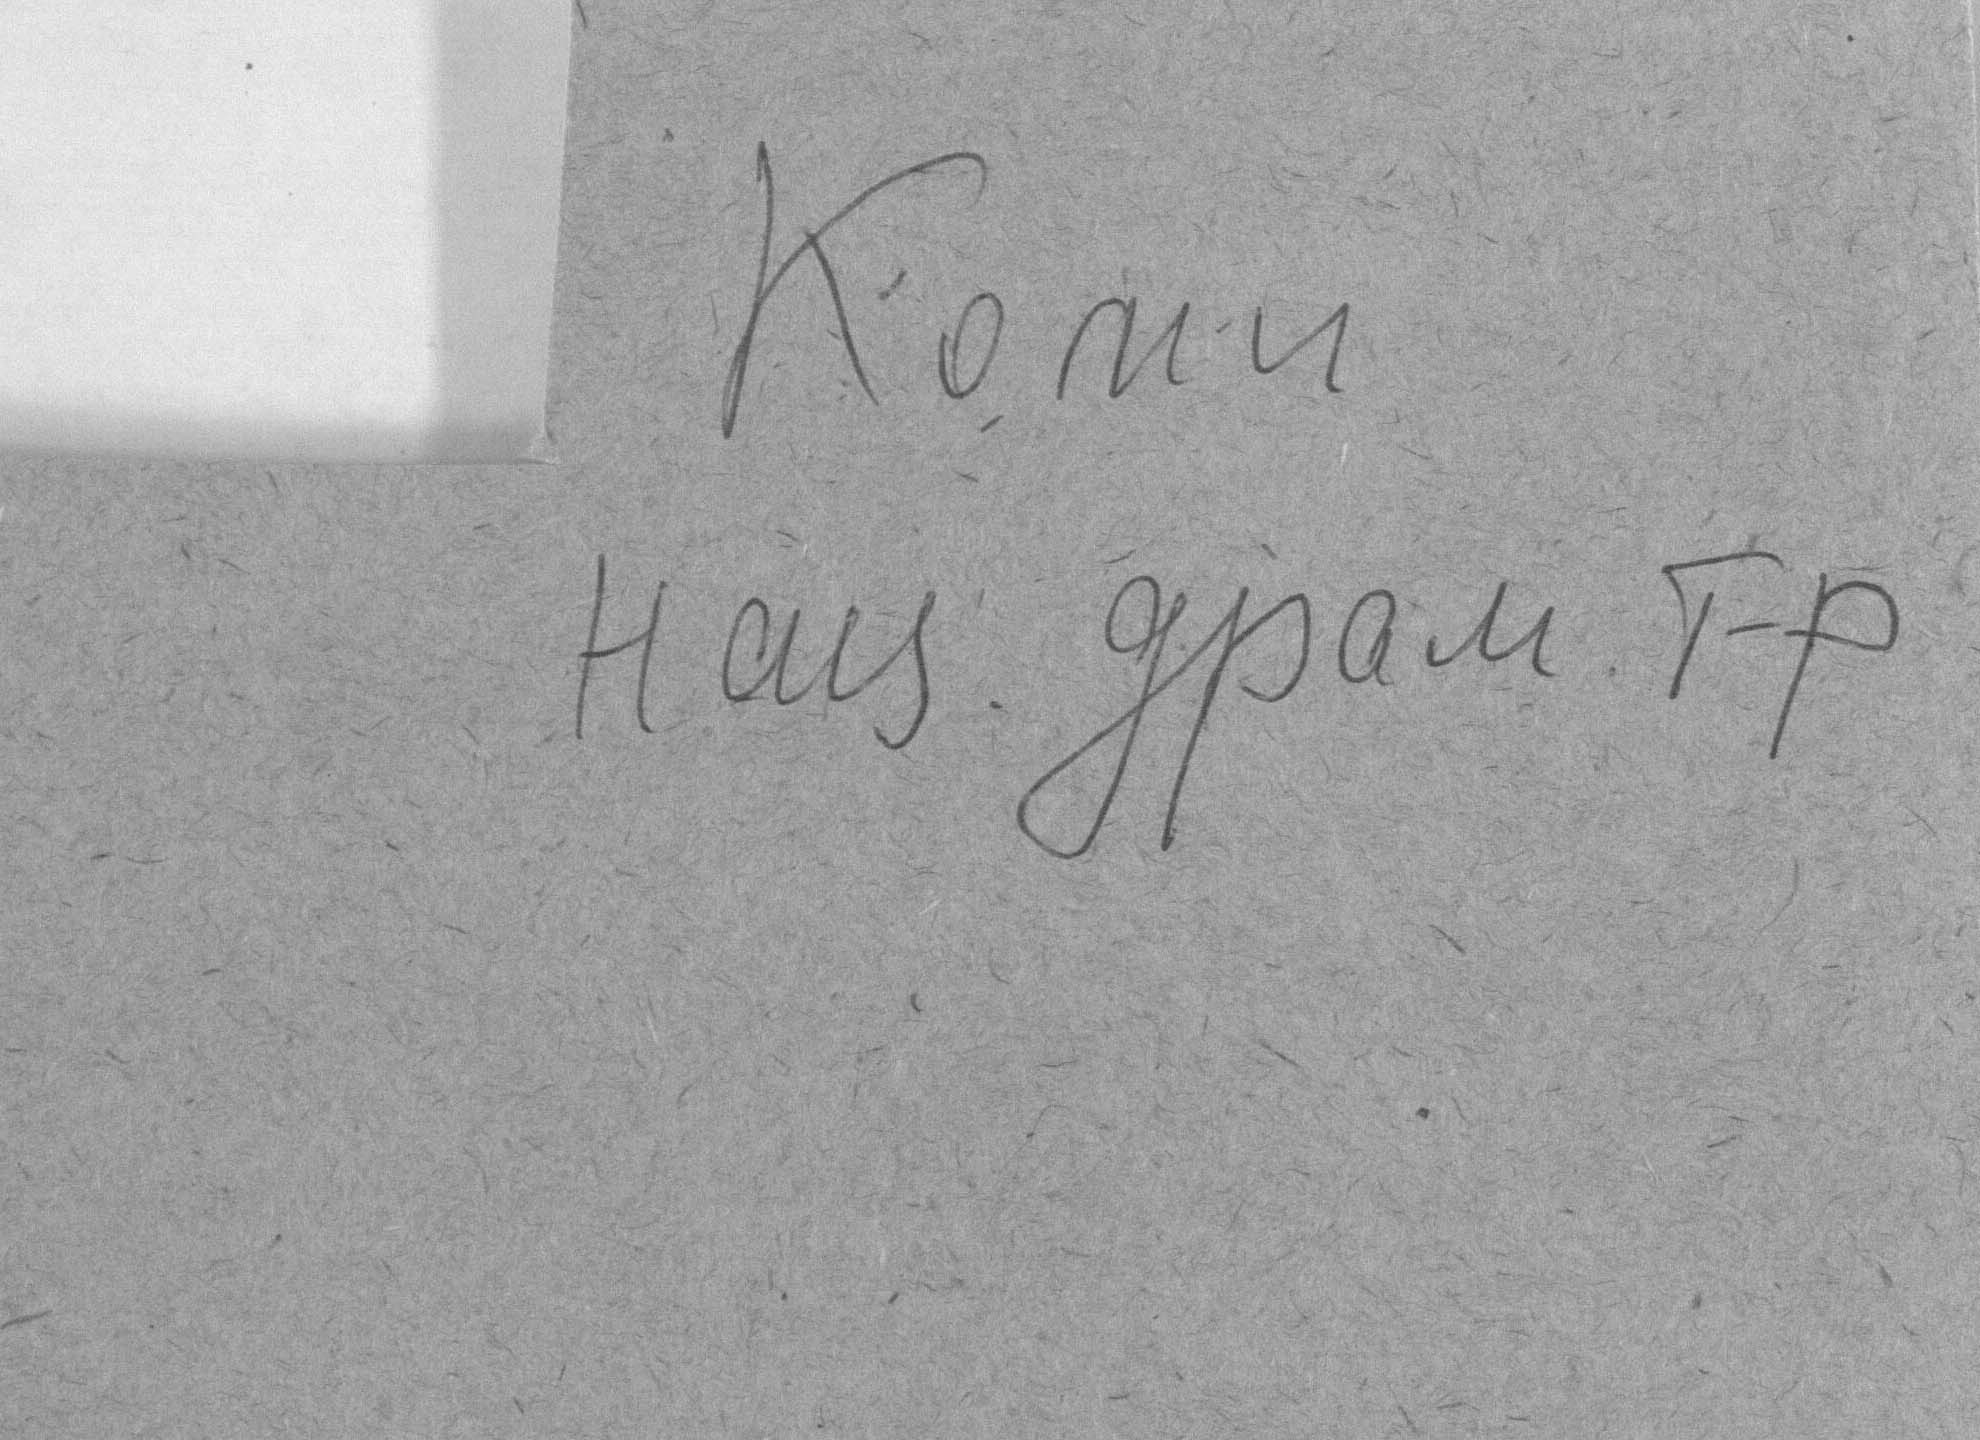 Коми
нац. драм. т-р